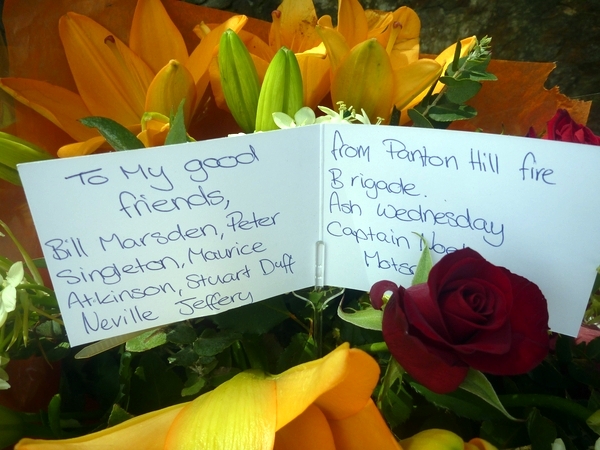 To My good
friends,
Bill Marsden, Peter
Singleton, Maurice
Atkinson, Stuart Duff
Neville Jeffery
from Panton Hill fire
Brigade.
Ash Wednesday
Captain